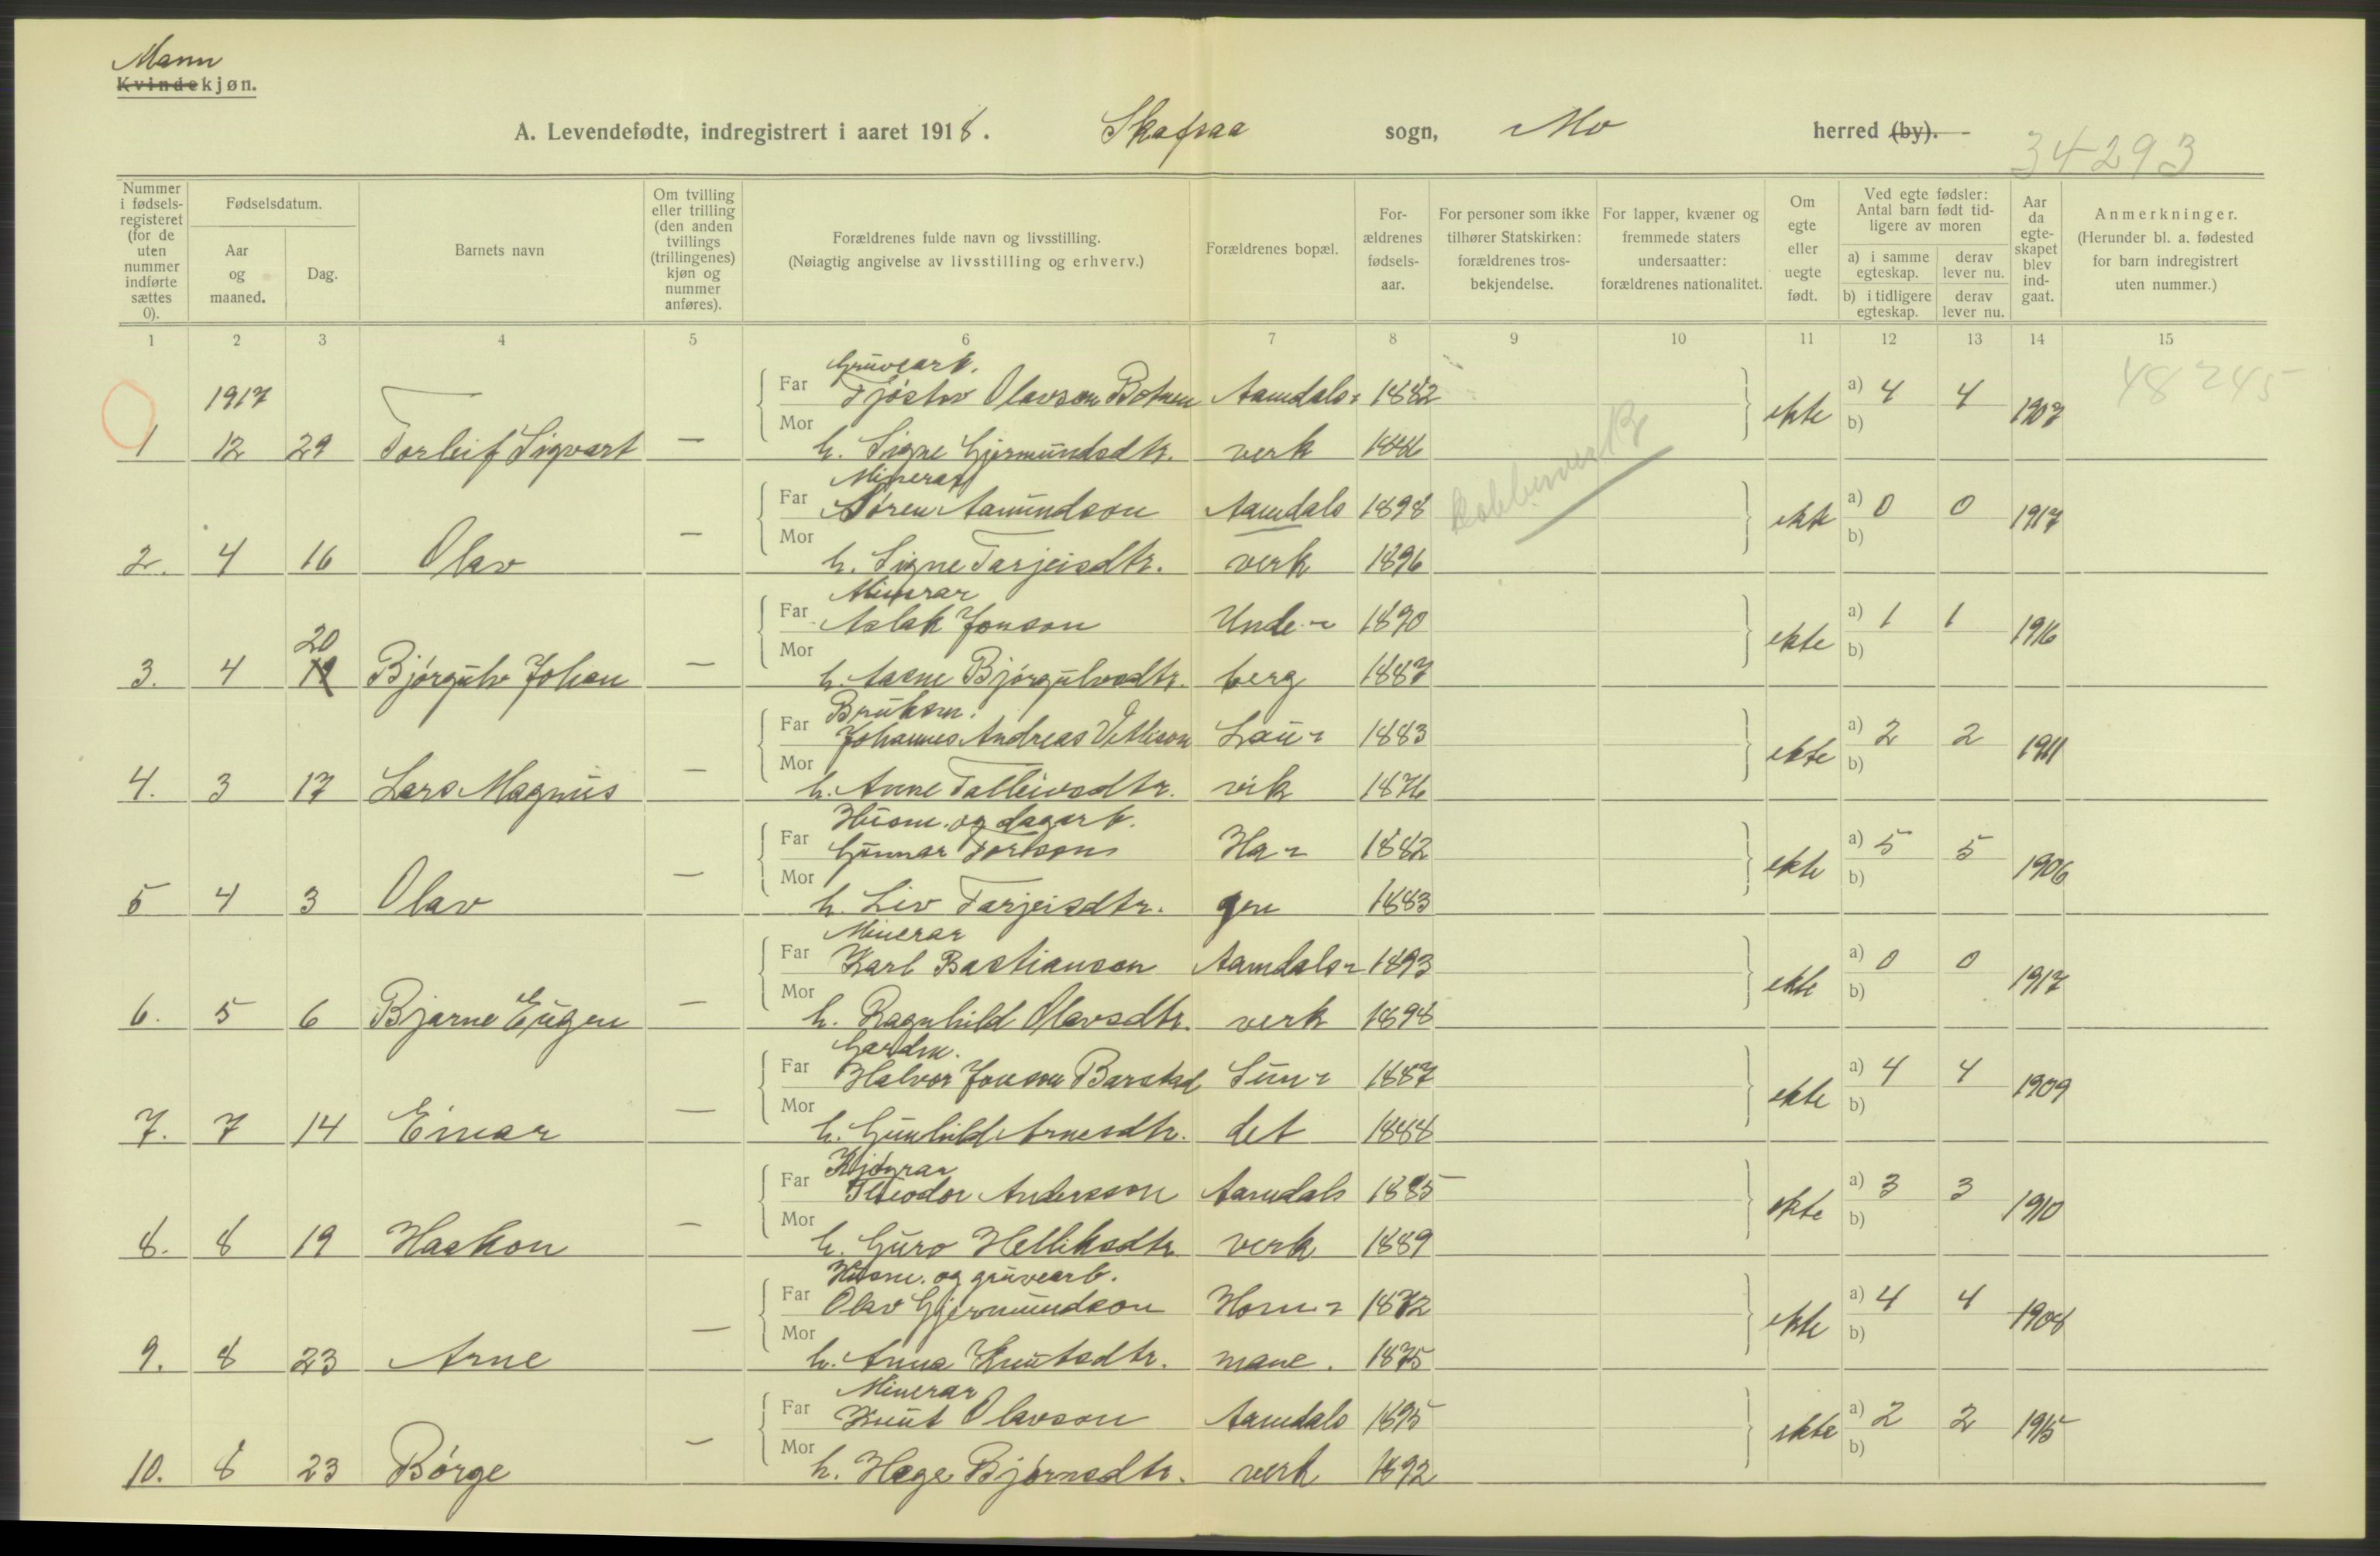 Mann
Kvindekjøn.
A. Levendefødte, indregistrert i aaret 1918. Skafsaa sogn, Mo herred (by).
34293
Nummer i fødselsregisteret (for de uten nummer indførte sættes 0).
Fødselsdatum.
Aar og maaned.
Dag.
Barnets navn
Om tvilling eller trilling (den anden tvillings (trillingenes) kjøn og nummer anføres).
Forældrenes fulde navn og livsstilling.
(Nøiagtig angivelse av livsstilling og erhverv.)
Forældrenes bopæl.
Forældrenes fødselsaar.
For personer som ikke tilhører Statskirken: forældrenes trosbekjendelse.
For lapper, kvæner og fremmede staters undersaatter: forældrenes nationalitet.
Om egte eller uegte født.
Ved egte fødsler: Antal barn født tidligere av moren
a) i samme egteskap.
derav lever nu.
b) i tidligere egteskap.
derav lever nu.
Aar da egteskapet blev indgaat.
Anmerkninger.
(Herunder bl. a. fødested for barn indregistrert uten nummer.)
1 2 3 4 5 6 7 8 9 10 11 12 13 14 15
48245
Gruvearb.
1917 Far Tjøstov Olavson Botnen Aamdals- 1882 a) 4 4
Mor ekte b) 1907
1 12 29 Torleif Sigvart — h. Signe Gjermundsdtr. verk 1886
kobberverk
Minerar
Far Søren Aamundson Aamdals 1898 a) 0 0
Mor ekte b) 1917
2. 4 16 Olav — h. Signe Tarjeisdtr. verk 1896
Minerar
Far Aslak Jonson Unde- 1890 a) 1 1
20 Mor ekte b) 1916
3. 4 19 Bjørgulv Johan — h. Aasne Bjørgulvsdtr. berg 1887
Bruksm.
Far Johannes Andreas Vetleson Lau- 1883 a) 2 2
Mor ekte b) 1911
4. 3 17 Lars Magnus — h. Anne Talleivsdtr. vik 1876
Husm. og dagarb.
Far Gunnar Torkson Ha- 1882 a) 5 5
Mor ekte b) 1906
5 4 3 Olav — h. Liv Tarjeisdtr. gen 1883
Minerar
Far Karl Bastianson Aamdals- 1893 a) 0 0
Mor ekte b) 1917
6. 5 6 Bjarne Eugen — h. Ragnhild Olavsdtr. verk 1898
Gardm.
Far Halvor Jonson Barstad Sun- 1887 a) 4 4
Mor ekte b) 1909
7. 7 14 Einar — h. Gunhild Arnesdtr. det 1888
Kjøyrar
Far Theodor Andersson Aamdals 1885 a) 3 3
Mor ekte b) 1910
8. 8 19 Haakon — h. Guro Helliksdtr. verk 1889
Husm. og gruvearb.
Far Olav Gjermundson Horn- 1872 a) 4 4
Mor ekte b) 1908
9. 8 23 Arne — h. Anna Knutsdtr. mane. 1875
Minerar
Far Knut Olavson Aamdals 1895 a) 2 2
Mor ekte b) 1915
10. 8 23 Børge — h. Hege Bjørnsdtr. verk 1892